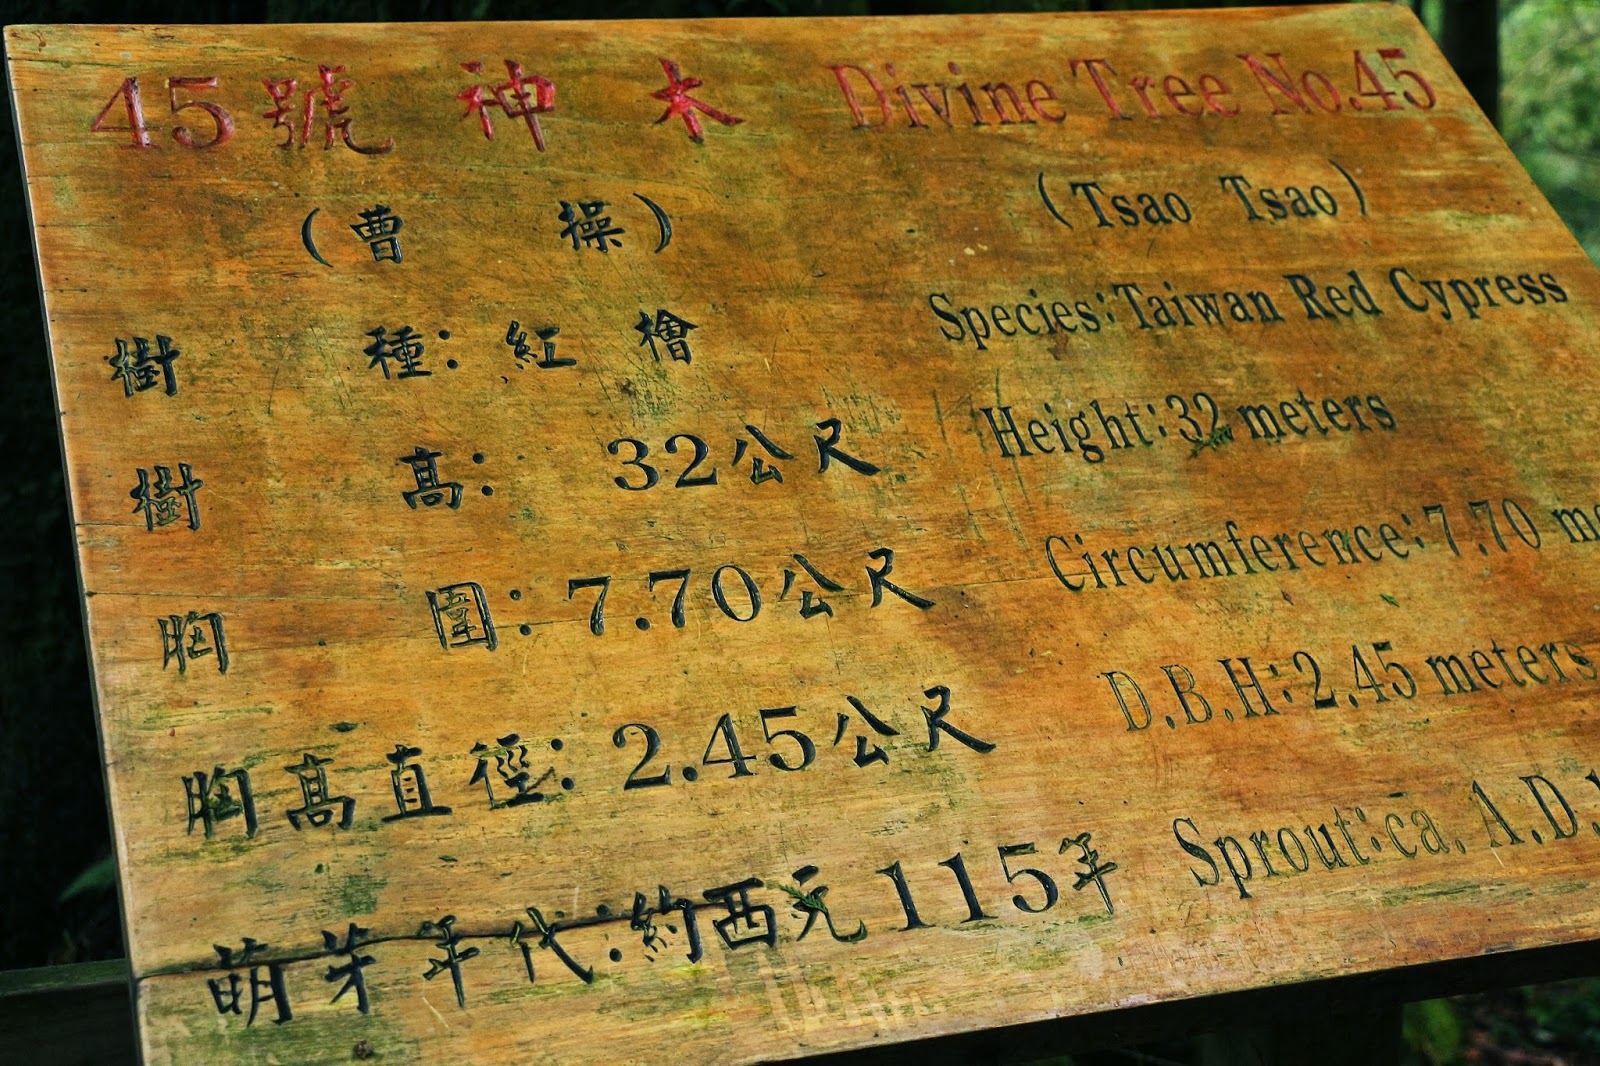 45號 神 木 Divine Tree No.45
(曹 操) (Tsao Tsao)
樹 種: 紅 檜 Species:Taiwan Red Cypress
樹 高: 32公尺 Height:32 meters
胸 圍:7.70公尺 Circumference:7.70
胸高直徑:2.45公尺 D.B.H:2.45 meters
萌芽年代:約西元115年 Sprout:ca. A.D.